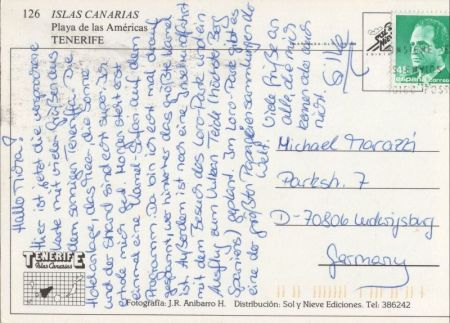 126 ISLAS CANARIAS
Playa de las Américas
TENERIFE
Hallo Micha!
Hier ist jetzt die versprochene
Karte mit vielen Grüßen aus
dem sonnigen Teneriffa. Die
Hotelanlage, das Meer, die Sonne
und der Strand sind echt super. Ich
erhole mich gut. Morgen steht erst
einmal eine Kamel-Safari auf dem
Programm. Da bin ich echt mal drauf
gespannt, wer hinterher das größere Kamel
ist. Außerdem ist noch eine Inselrundfahrt
mit dem Besuch des Loro-Parks und ein
Ausflug zum Vulkan Teide (höchster Berg
Spaniens) geplant. Im Loro-Park gibt es
eine der größten Papageiensammlungen der
Welt.
Viele Grüße an
alle, die mich
kennen oder auch
nicht.
Silke
España correo
Michael Marazzi
Parkstr. 7
D-70806 Ludwigsburg
Germany
TENERIFE
Islas Canarias
Fotografía: J.R. Anibarro H. Distribución: Sol y Nieve Ediciones. Tel: 386242